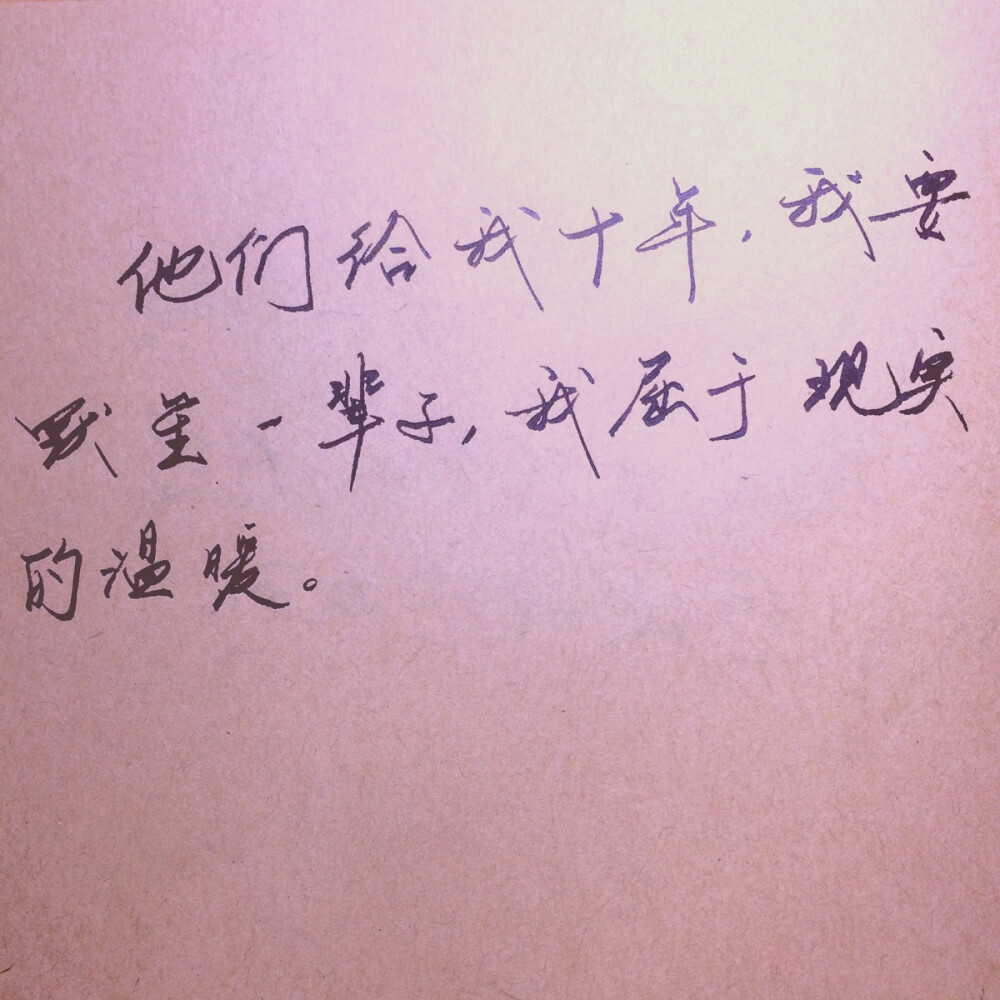 他们给我十年，我要
默笙一辈子，我屈于现实
的温暖。